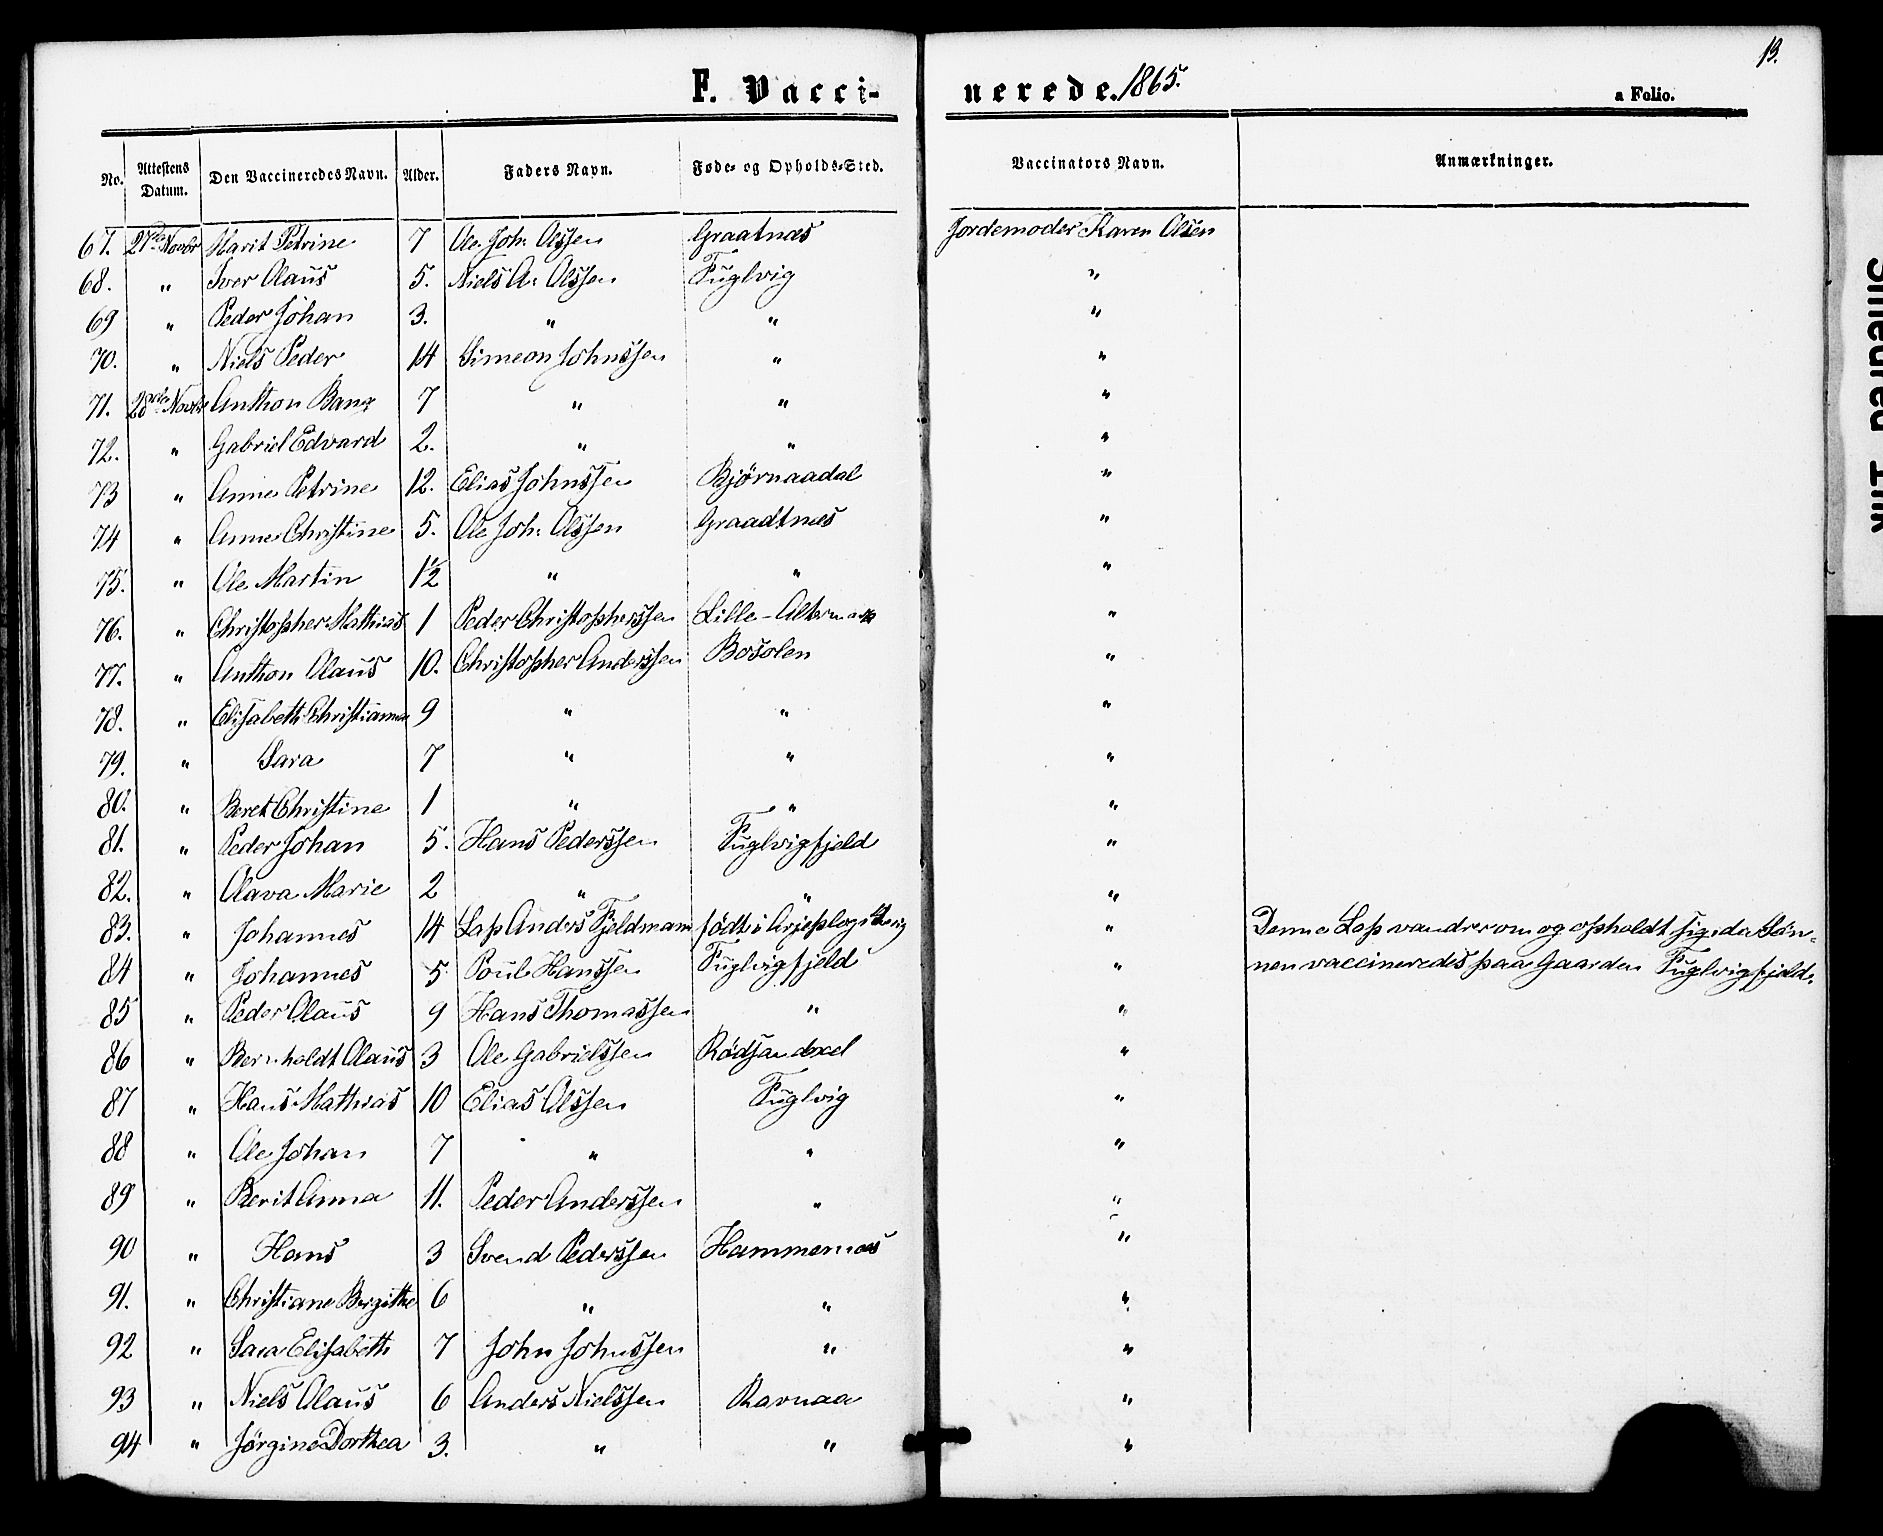 13.
F. Vacci- nerede. 1865.
a Folio.
No. Attestens Datum. Den Vaccineredes Navn. Alder. Faders Navn. Føde- og Opholds-Sted. Vaccinators Navn. Anmærkninger.
67. 27de Novbr Marit Petrine 7 Ole Joh. Olssen Graatnæs Jordemoder Karen Olsen
68. " Iver Olaus 5. Niels A. Olssen Fuglvig "
69 " Peder Johan 3. " " "
70. " Niels Peder 14 Simeon Johnssen " "
71. 28de Novbr Anthon Bang 7 " " "
72. " Gabriel Edvard 2. " " "
73 " Anne Petrine 12. Elias Johnssen Bjørnaadal "
74 " Anne Christine 5. Ole Joh. Olssen Graadtnæs "
75. " Ole Martin 1½ " " "
76. " Christopher Mathias 1 Peder Christopherssen Lille-Altermark "
77. " Anthon Olaus 10. Christopher Anderssen Bosolen "
78. " Elisabeth Christianne 9 " " "
79. " Sara 7 " " "
80. " Beret Christine 1 " " "
81. " Peder Johan 5. Hans Pederssen Fuglvigfjeld "
82. " Olava Marie 2 " " "
83. " Johannes 14 Lap Anders Fjeldmann født i Arjeplog Sverig " Denne Lap vandrer om og opholdt sig da Søn-
84 " Johannes 5 Poul Hanssen Fuglvigfjeld " nen vaccineredes paa Gaarden Fuglvigfjeld.
85 " Peder Olaus 9 Hans Thomassen " "
86 " Bernholdt Olaus 3 Ole Gabrielssen Rødsandxel "
87 " Hans Mathias 10 Elias Olssen Fuglvig "
88 " Ole Johan 7 " " "
89 " Berit Anna 11. Peder Anderssen " "
90 " Hans 3 Svend Pederssen Hammernæs "
91. " Christiane Bergithe 6 " " "
92 " Sara Elisabeth 7 John Johnssen " "
93 " Niels Olaus 6 Anders Nielssen Ravnaa "
94 " Jørgine Dorthea 3. " " "